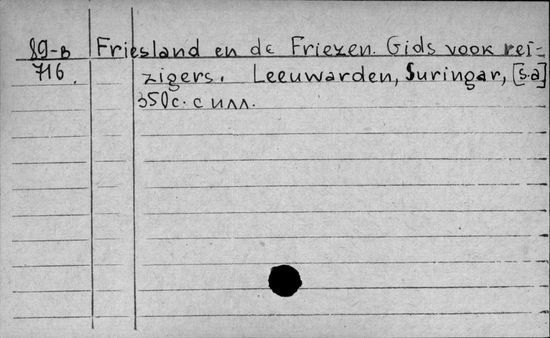 89-в Friesland en de Friezen. Gids voor rei-
716. zigers. Leeuwarden, Suringar, [s.a]
350c. с илл.